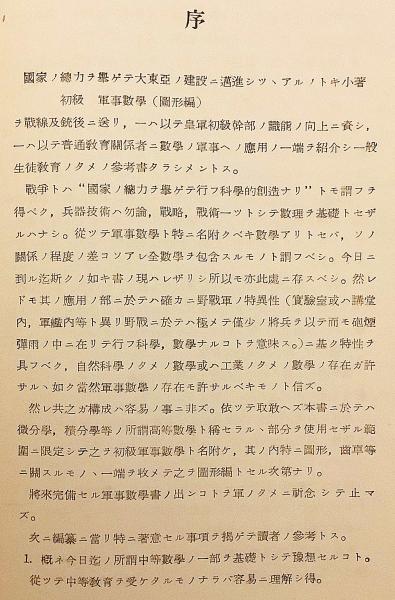 序
國家ノ總力ヲ擧ゲテ大東亞ノ建設ニ邁進シツヽアルノトキ小著
初級 軍事數學(圖形編)
ヲ戰線及銃後ニ送リ,一ハ以テ皇軍初級幹部ノ識能ノ向上ニ資シ,
一ハ以テ普通敎育關係者ニ數學ノ軍事ヘノ應用ノ一端ヲ紹介シ一般
生徒敎育ノタメノ參考書タラシメントス.
戰爭トハ“國家ノ總力ヲ擧ゲテ行フ科學的創造ナリ”トモ謂フヲ
得ベク,兵器技術ハ勿論,戰略,戰術一ツトシテ數理ヲ基礎トセザ
ルハナシ.從ツテ軍事數學ト特ニ名附クベキ數學アリトセバ,ソノ
關係ノ程度ノ差コソアレ全數學ヲ包含スルモノト謂フベシ.今日ニ
到ル迄斯クノ如キ書ノ現ハレザリシ所以モ亦此處ニ存スベシ.然レ
ドモ其ノ應用ノ部ニ於テハ確カニ野戰軍ノ特異性(實驗室或ハ講堂
內,軍艦內等ト異リ野戰ニ於テハ極メテ僅少ノ將兵ヲ以テ而モ砲煙
彈雨ノ中ニ在リテ行フ科學,數學ナルコトヲ意味ス.)ニ基ク特性ヲ
具フベク,自然科學ノタメノ數學或ハ工業ノタメノ數學ノ存在ガ許
サルヽ如ク當然軍事數學ノ存在モ許サルベキモノト信ズ.
然レ共之ガ構成ハ容易ノ事ニ非ズ.依ツテ取敢ヘズ本書ニ於テハ
微分學,積分學等ノ所謂高等數學ト稱セラルヽ部分ヲ使用セザル範
圍ニ限定シテ之ヲ初級軍事數學ト名附ケ,其ノ內特ニ圖形,曲線等
ニ關スルモノヽ一端ヲ收メテ之ヲ圖形編トセル次第ナリ.
將來完備セル軍事數學書ノ出シコトヲ軍ノタメニ祈念シテ止マ
ズ.
次ニ編纂ニ當リ特ニ著意セル事項ヲ揭ゲテ讀者ノ參考トス.
1. 槪ネ今日迄ノ所謂中等數學ノ一部ヲ基礎トシテ豫想セルコト.
從ツテ中等敎育ヲ受ケタルモノナラバ容易ニ理解シ得.